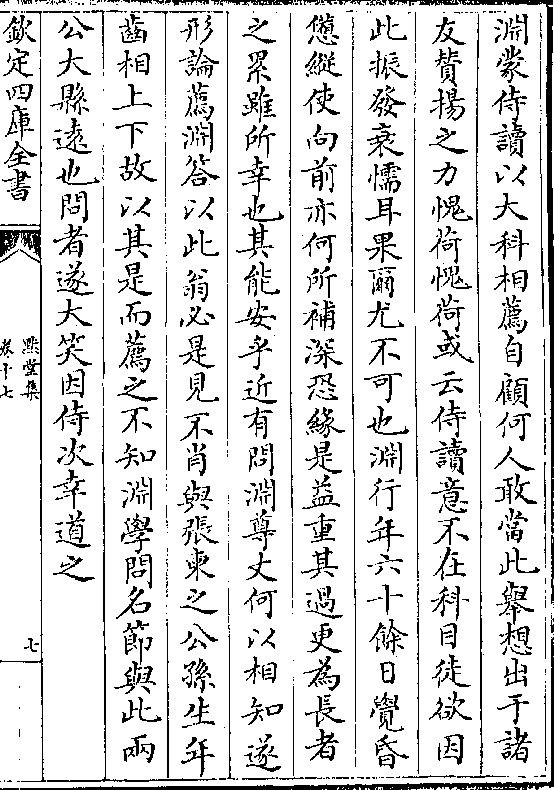 淵蒙侍讀以大科相薦自顧何人敢當此舉想出于諸
友賛揚之力愧荷愧荷或云侍讀意不在科目徒欲因
此振發衰懦耳果爾尤不可也淵行年六十餘日覺昏
憊縱使向前亦何所補深恐縁是益重其過更為長者
之累雖所幸也其能安乎近有問淵尊丈何以相知遂
形論薦淵答以此翁必是見不肖與張柬之公孫生年
齒相上下故以其是而薦之不知淵學問名節與此兩
公大縣遠也問者遂大笑因侍次幸道之
欽定四庫全書
默堂集
卷十七
七